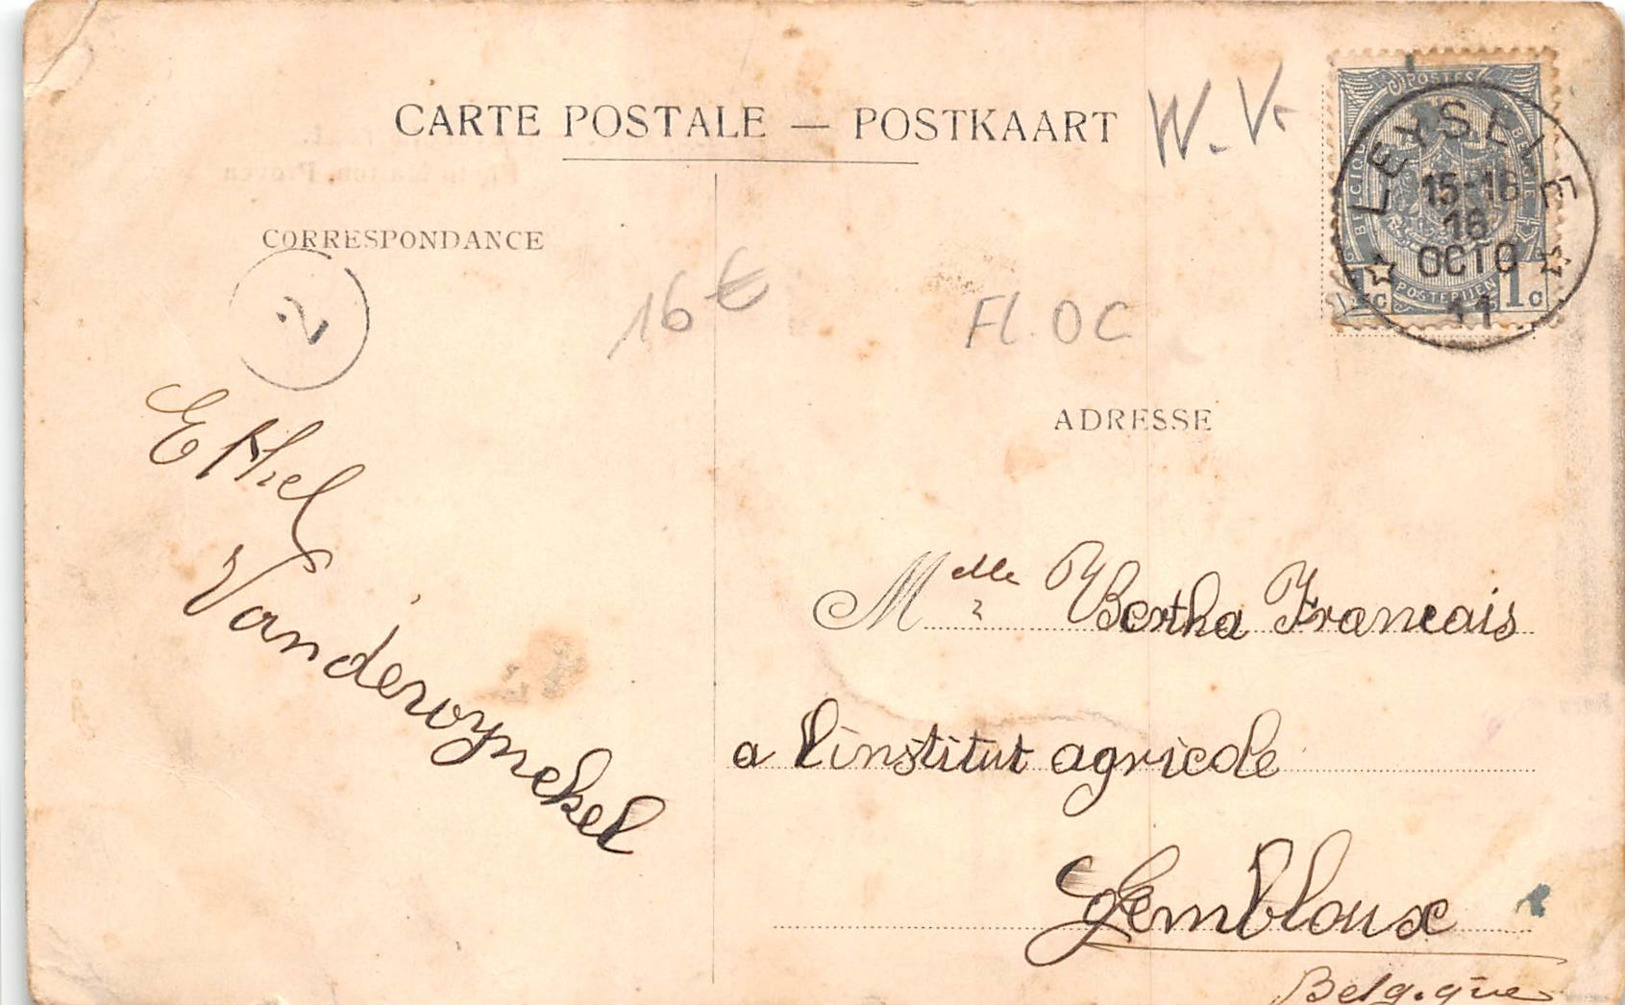 CARTE POSTALE — POSTKAART
W.-V.
POSTES
BELGIQUE BELGIË
1c POSTERIJEN 1c
LEYSELE
15-16
16
OCTO
11
CORRESPONDANCE
2
16 €
FL. OC
ADRESSE
Ethel
Vanderoynekel
Mdlle Bertha Francais
a l'institut agricole
Gembloux
Belgique